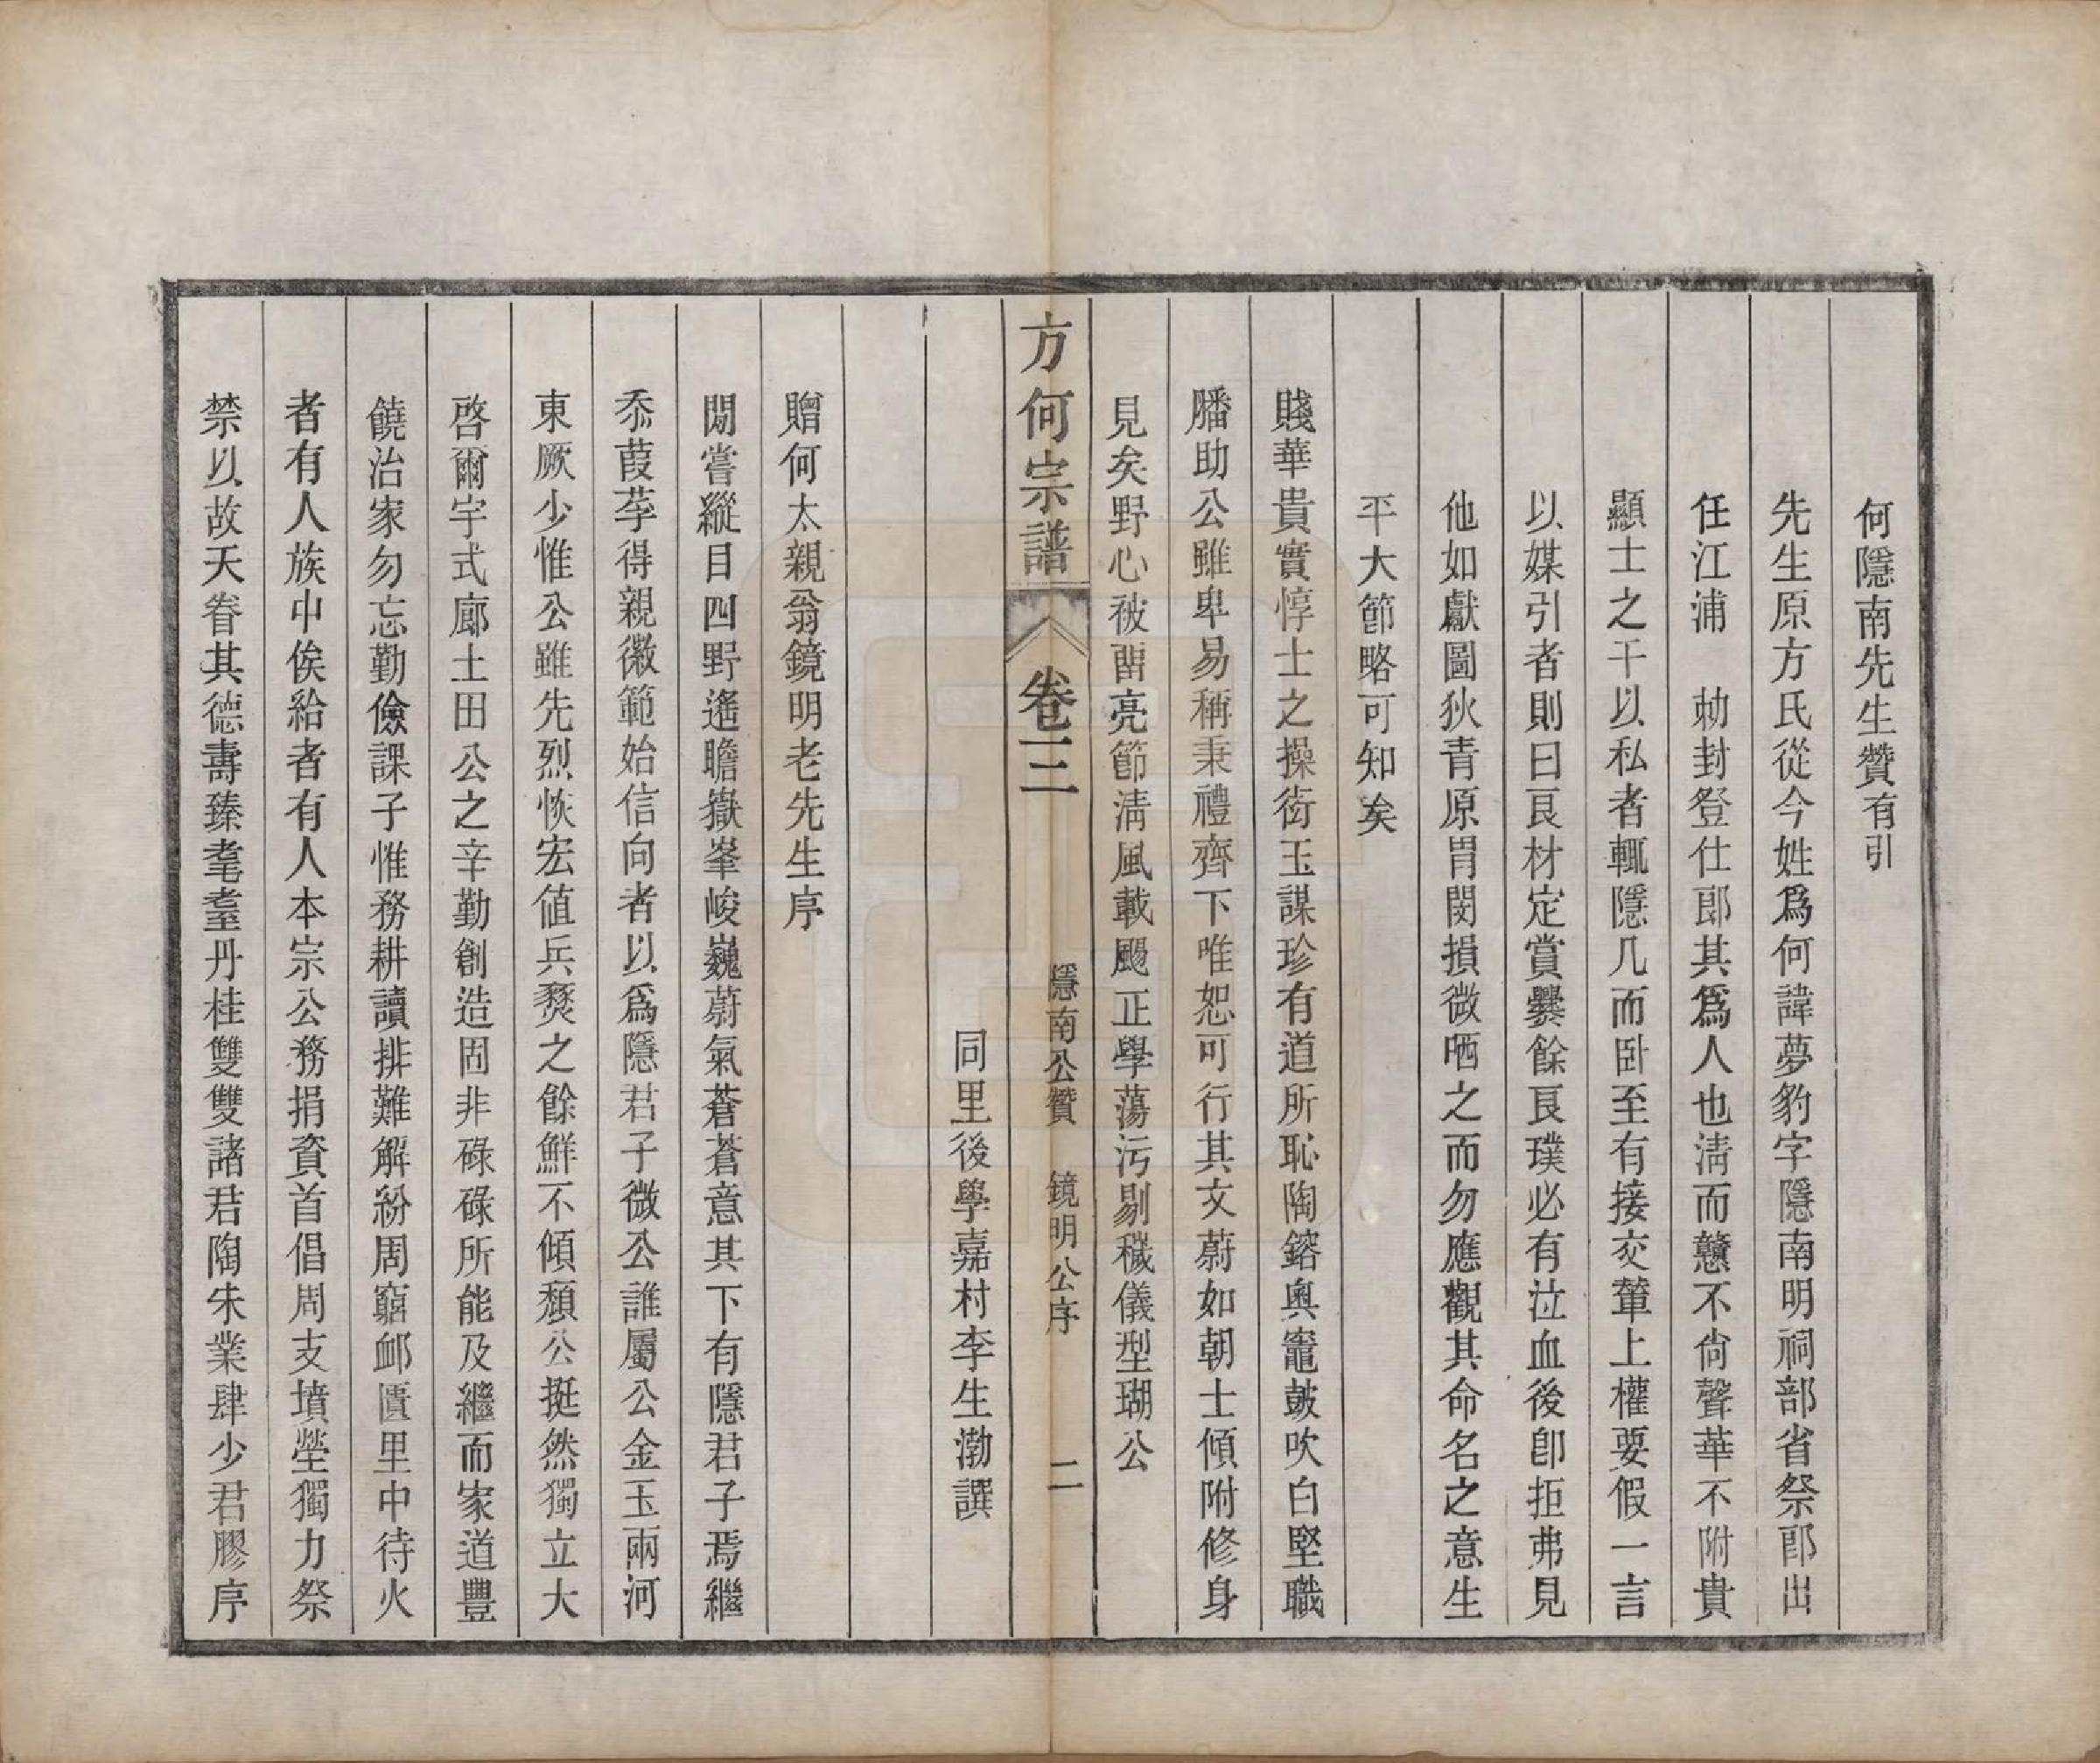 何隱南先生贊有引
先生原方氏從今姓爲何諱夢豹字隱南明祠部省祭郎出
任江浦　勅封登仕郎其爲人也淸而戆不尙聲華不附貴
顯士之干以私者輒隱几而卧至有接交輦上權要假一言
以媒引者則曰良材定賞爨餘良璞必有泣血後卽拒弗見
他如獻圖狄青原胃閔損微哂之而勿應觀其命名之意生
平大節略可知矣
賤華貴實惇士之操衒玉謀珍有道所恥陶鎔奧竈鼓吹白堅職
膰助公雖卑易稱秉禮齊下唯恕可行其文蔚如朝士傾附修身
見矣野心被畱亮節淸風載颺正學蕩污剔穢儀型瑚公
同里後學嘉村李生渤譔
方何宗譜
卷三
隱南公贊　鏡明公序
二
贈何太親翁鏡明老先生序
閒嘗縱目四野遙瞻嶽峯峻巍蔚氣蒼蒼意其下有隱君子焉繼
忝葭莩得親徽範始信向者以爲隱君子微公誰屬公金玉兩河
東厥少惟公雖先烈恢宏値兵燹之餘鮮不傾頹公挺然獨立大
啓爾宇式廓土田公之辛勤創造固非碌碌所能及繼而家道豐
饒治家勿忘勤儉課子惟務耕讀排難解紛周窮卹匱里中待火
者有人族中俟給者有人本宗公務捐資首倡周支墳塋獨力祭
禁以故天眷其德壽臻耄耋丹桂雙雙諸君陶朱業肆少君膠序